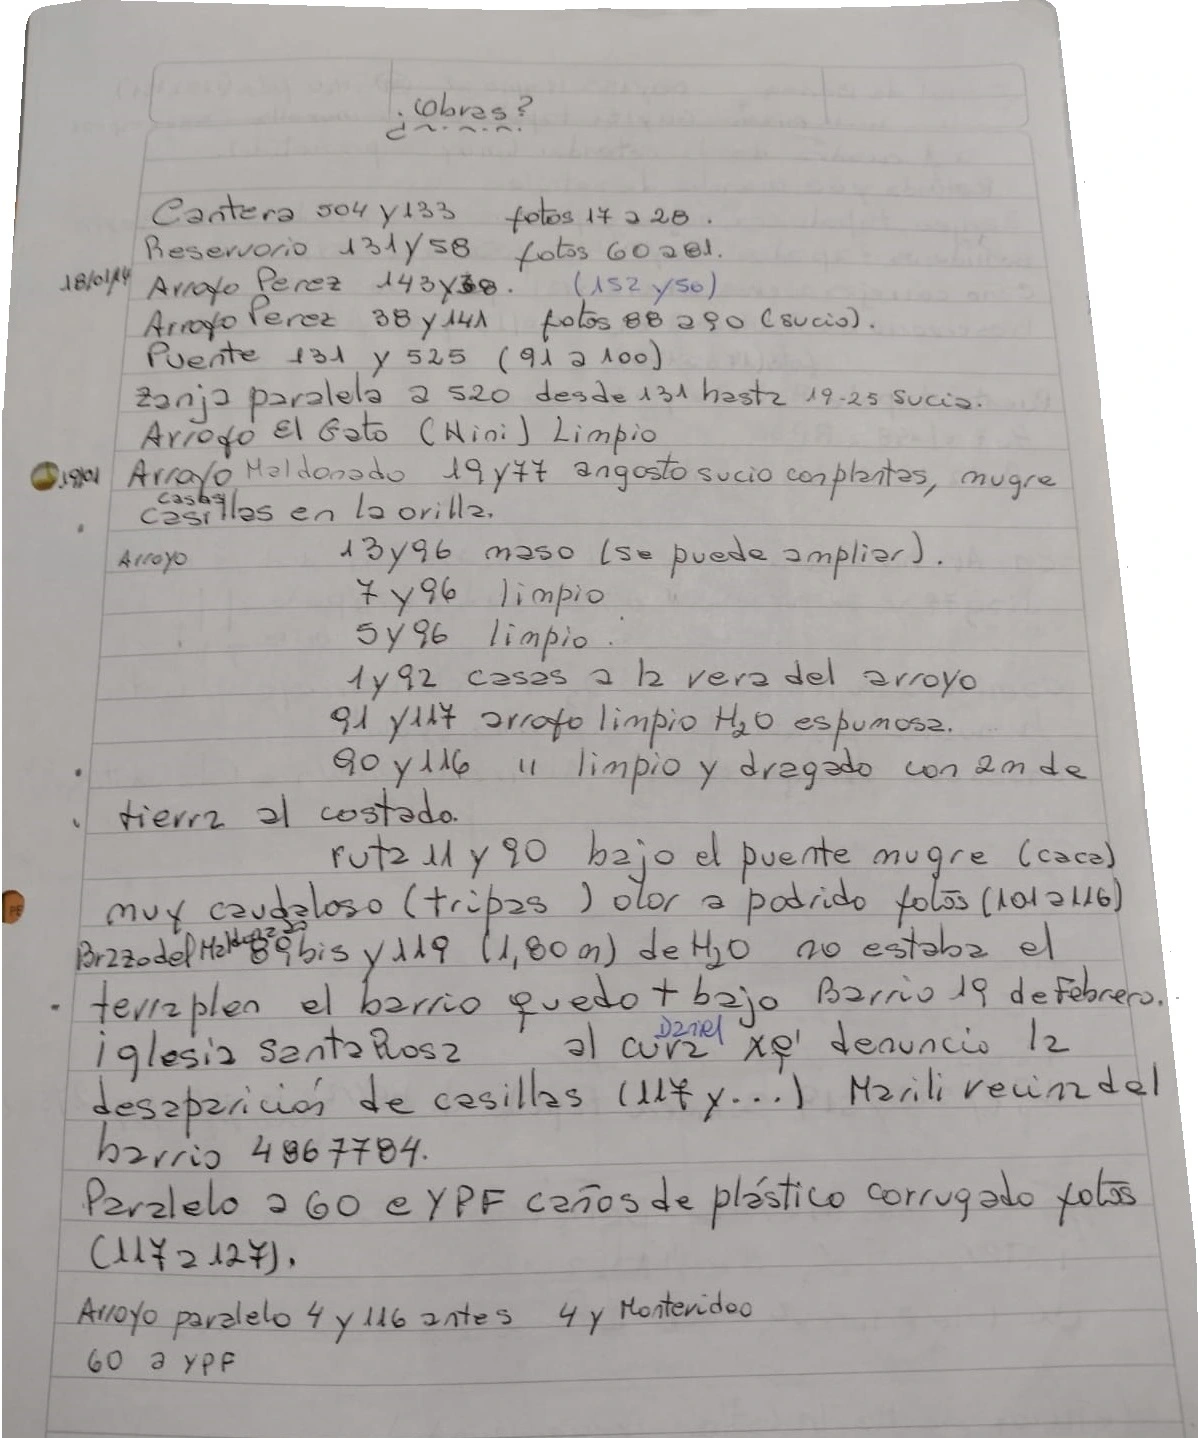 ¿Obras?
Cantera 504 y 133 fotos 17 a 28.
Reservorio 131 y 58 fotos 60 a 81.
18/01/14 Arroyo Perez 143 y 38. (152 y 50)
Arroyo Perez 38 y 141 fotos 88 a 90 (sucio).
Puente 131 y 525 (91 a 100)
Zanja paralela a 520 desde 131 hasta 19-25 sucia.
Arroyo El Gato (Nini) Limpio
19/01 Arroyo Maldonado 19 y 77 angosto sucio con plantas, mugre
casas
casillas en la orilla.
Arroyo 13 y 96 maso (se puede ampliar).
7 y 96 limpio
5 y 96 limpio.
1 y 92 casas a la vera del arroyo
91 y 117 arroyo limpio H2O espumosa.
90 y 116 " limpio y dragado con 2m de
tierra al costado.
ruta 11 y 90 bajo el puente mugre (caca)
muy caudaloso (tripas) olor a podrido fotos (101 a 116)
Brazo del Maldonado 89 bis y 119 (1,80 m) de H2O no estaba el
terraplen el barrio quedo + bajo Barrio 19 de Febrero.
iglesia Santa Rosa al cura Daniel xq' denuncio la
desaparición de casillas (117 y...) Marili vecina del
barrio 4867784.
Paralelo a 60 e YPF caños de plástico corrugado fotos
(117 a 127).
Arroyo paralelo 4 y 116 antes 4 y Montevideo
60 a YPF